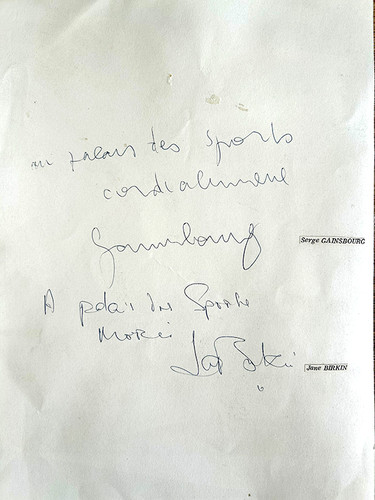 au palais des Sports
cordialement
Gainsbourg
Serge GAINSBOURG
A palais des Sports
Merci
Jane Birkin
Jane BIRKIN